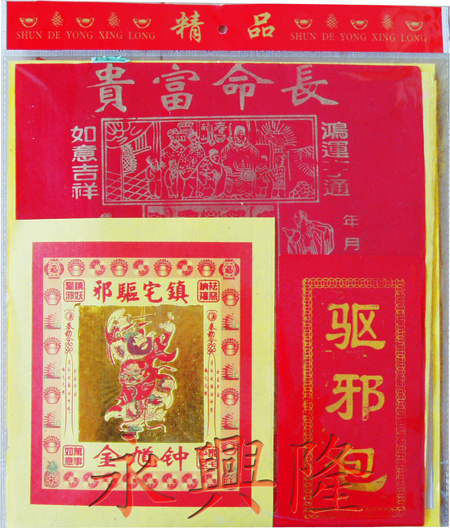 SHUN DE YONG XING LONG 精品 SHUN DE YONG XING LONG
長命富貴
鴻運亨通
如意吉祥
年月
镇宅驅邪
祛惡
納福
萬事
如意
钟馗金
驱邪包
永興隆